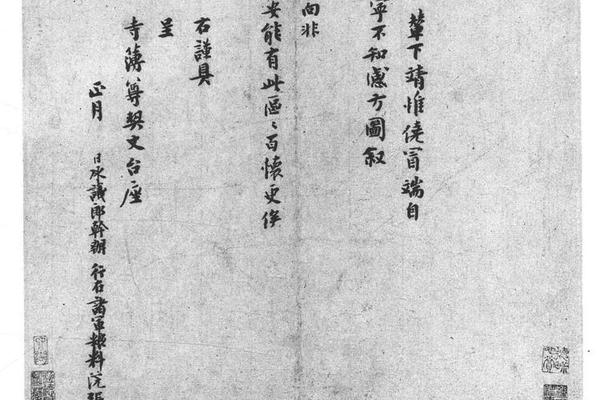 輦下靖惟僥冒端自
寧不知感方圖叙
向非
安能有此區〻百懷更俟
右謹具
呈
寺簿尊契文台座
正月 日承議郎幹辦行在諸軍糧料院張